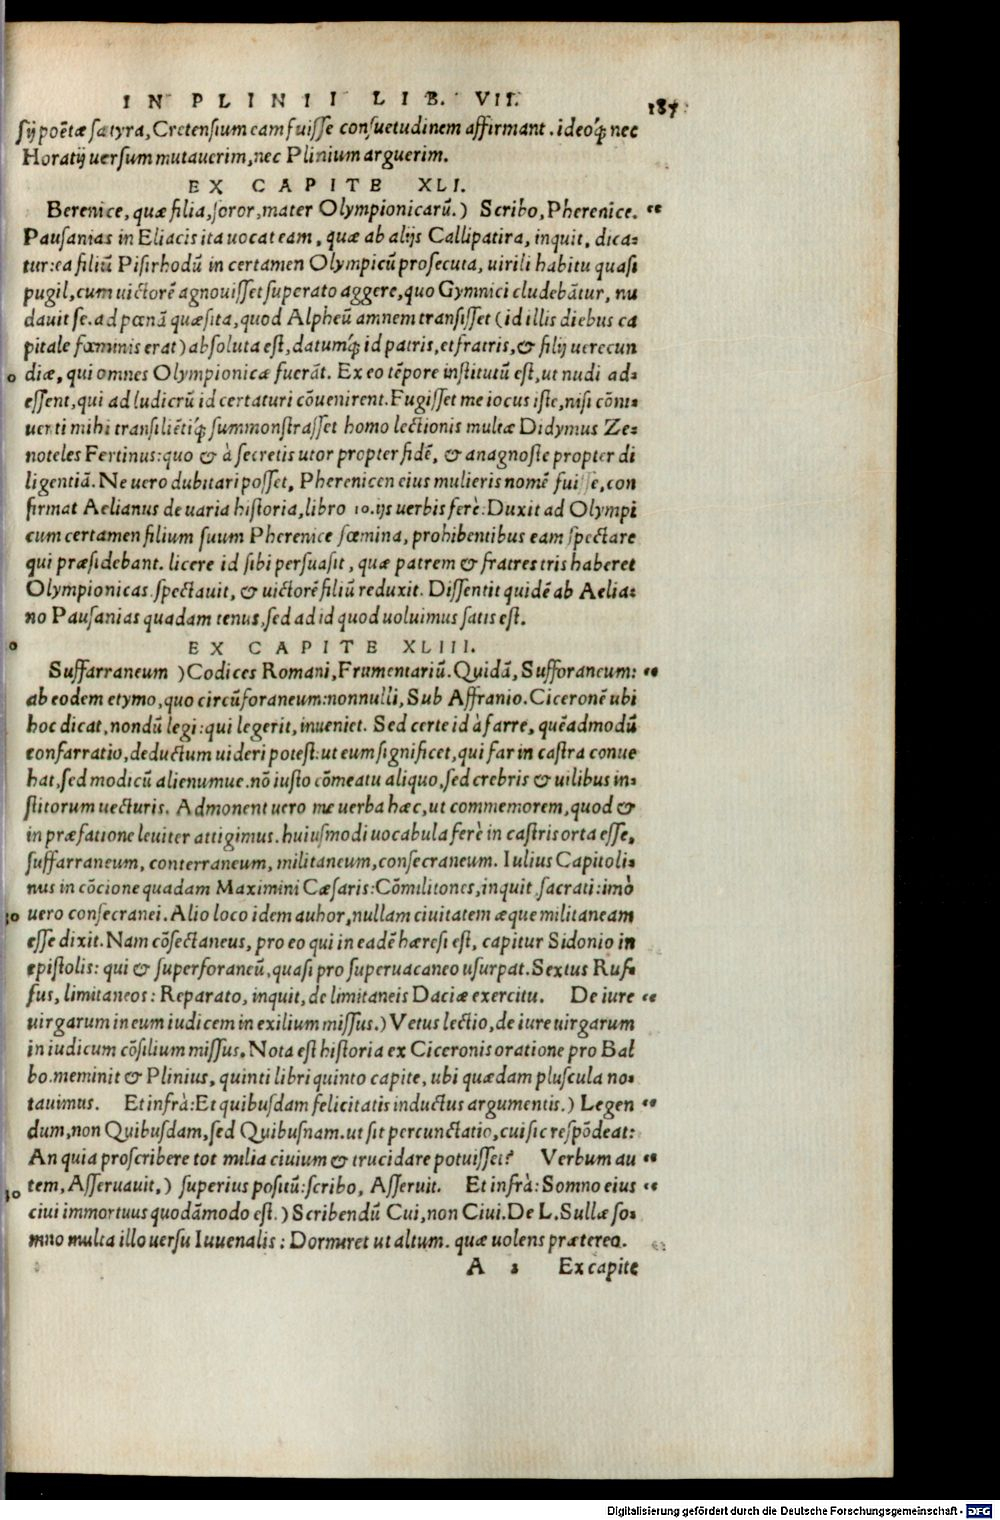 IN PLINII LIB. VII. 187
sij poëtæ satyra, Cretensium eam fuisse consuetudinem affirmant. ideoq́; nec
Horatij uersum mutauerim, nec Plinium arguerim.
EX CAPITE XLI.
Berenice, quæ filia, soror, mater Olympionicarū.) Scribo, Pherenice.
Pausanias in Eliacis ita uocat eam, quæ ab alijs Callipatira, inquit, dica=
tur: ea filiū Pisirhodū in certamen Olympicū prosecuta, uirili habitu quasi
pugil, cum uictorē agnouisset superato aggere, quo Gymnici cludebātur, nu
dauit se. ad pœnā quæsita, quod Alpheū amnem transisset (id illis diebus ca
pitale fœminis erat) absoluta est, datumq́; id patris, et fratris, & filij uerecun
diæ, qui omnes Olympionicæ fuerāt. Ex eo tēpore institutū est, ut nudi ad=
essent, qui ad ludicrū id certaturi cōuenirent. Fugisset me iocus iste, nisi cōni=
uenti mihi transiliētiq́; summonstrasset homo lectionis multæ Didymus Ze=
noteles Fertinus: quo & à secretis utor propter fidē, & anagnoste propter di
ligentiā. Ne uero dubitari posset, Pherenicen eius mulieris nomē fuisse, con
firmat Aelianus de uaria historia, libro 10. ijs uerbis ferè: Duxit ad Olympi
cum certamen filium suum Pherenice fœmina, prohibentibus eam spectare
qui præsidebant. licere id sibi persuasit, quæ patrem & fratres tris haberet
Olympionicas. spectauit, & uictorē filiū reduxit. Dissentit quidē ab Aelia=
no Pausanias quadam tenus, sed ad id quod uolumus satis est.
EX CAPITE XLIII.
Suffarraneum) Codices Romani, Frumentariū. Quidā, Sufforaneum:
ab eodem etymo, quo circūforaneum: nonnulli, Sub Affranio. Ciceronē ubi
hoc dicat, nondū legi: qui legerit, inueniet. Sed certe id à farre, quēadmodū
confarratio, deductum uideri potest: ut eum significet, qui far in castra conue
hat, sed modicū alienumue. nō iusto cōmeatu aliquo, sed crebris & uilibus in=
stitorum uecturis. Admonent uero me uerba hæc, ut commemorem, quod &
in præfatione leuiter attigimus. huiusmodi uocabula ferè in castris orta esse,
suffarraneum, conterraneum, militaneum, consecraneum. Iulius Capitoli=
nus in cōcione quadam Maximini Cæsaris: Cōmilitones, inquit, sacrati: imò
uero consecranei. Alio loco idem auhor, nullam ciuitatem æque militaneam
esse dixit. Nam cōsectaneus, pro eo qui in eadē hæresi est, capitur Sidonio in
epistolis: qui & superforaneū, quasi pro superuacaneo usurpat. Sextus Ruf=
fus, limitaneos: Reparato, inquit, de limitaneis Daciæ exercitu. De iure
uirgarum in eum iudicem in exilium missus.) Vetus lectio, de iure uirgarum
in iudicum cōsilium missus. Nota est historia ex Ciceronis oratione pro Bal
bo. meminit & Plinius, quinti libri quinto capite, ubi quædam pluscula no=
tauimus. Et infrà: Et quibusdam felicitatis inductus argumentis.) Legen
dum, non Quibusdam, sed Quibusnam. ut sit percunctatio, cui sic respōdeat:
An quia proscribere tot milia ciuium & trucidare potuisset? Verbum au
tem, Asseruauit,) superius positū: scribo, Asseruit. Et infrà: Somno eius
ciui immortuus quodāmodo est.) Scribendū Cui, non Ciui. De L. Sullæ so=
mno multa illo uersu Iuuenalis: Dormiret ut altum. quæ uolens prætereo.
A 2 Ex capite
Digitalisierung gefördert durch die Deutsche Forschungsgemeinschaft - DFG